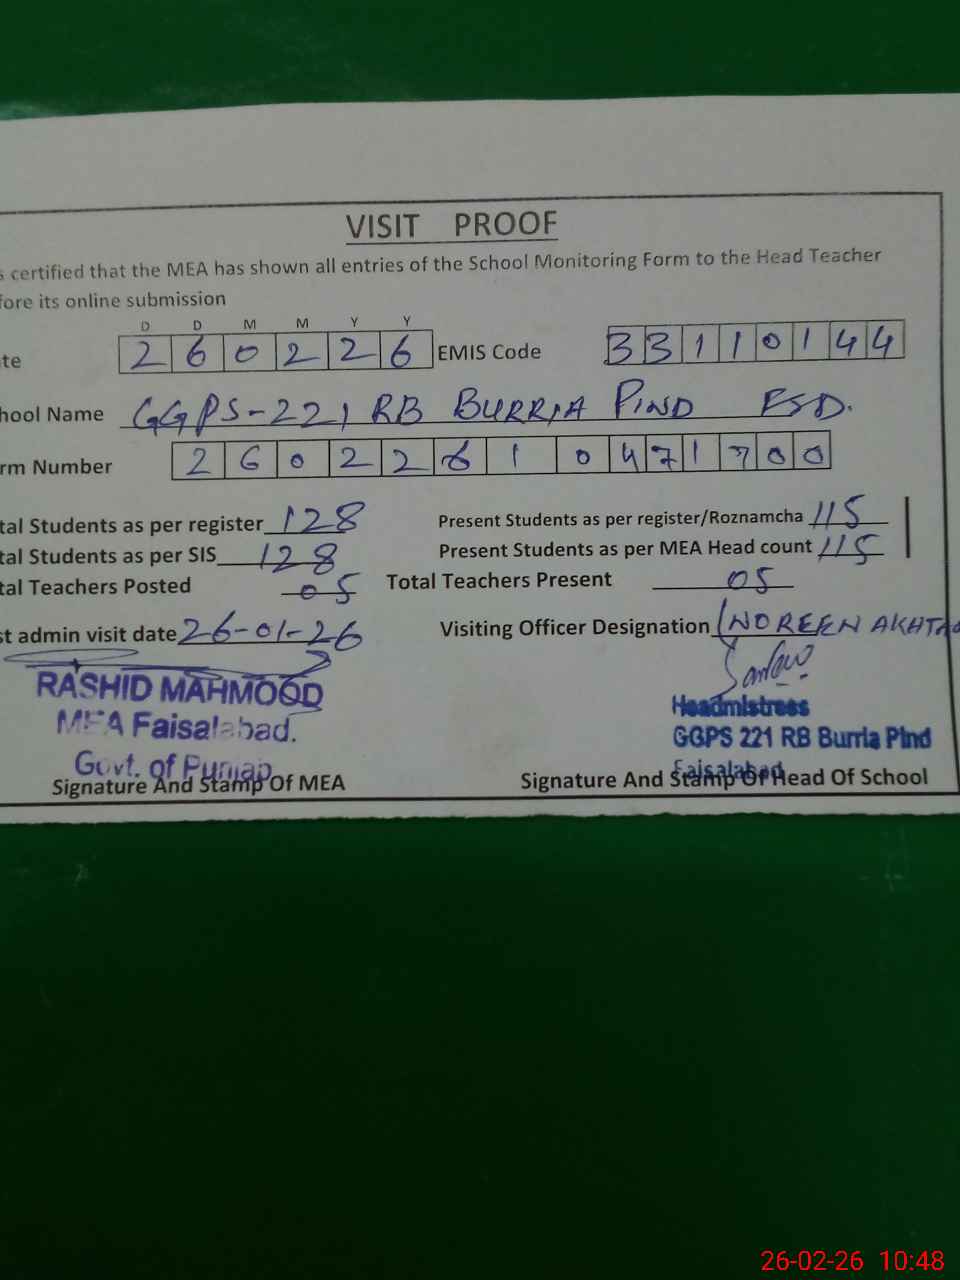 VISIT PROOF
s certified that the MEA has shown all entries of the School Monitoring Form to the Head Teacher
fore its online submission
D D M M Y Y
te 2 6 0 2 2 6 EMIS Code 3 3 1 1 0 1 4 4
hool Name GGPS-221 RB BURRIA PIND FSD.
rm Number 2 6 0 2 2 6 1 0 4 7 1 7 0 0
tal Students as per register 128 Present Students as per register/Roznamcha 115
tal Students as per SIS 128 Present Students as per MEA Head count 115
tal Teachers Posted 05 Total Teachers Present 05
st admin visit date 26-01-26 Visiting Officer Designation NOREEN AKHTAR
RASHID MAHMOOD
MEA Faisalabad.
Govt. of Punjab
Signature And Stamp Of MEA
Headmistress
GGPS 221 RB Burria Pind
Faisalabad
Signature And Stamp Of Head Of School
26-02-26 10:48